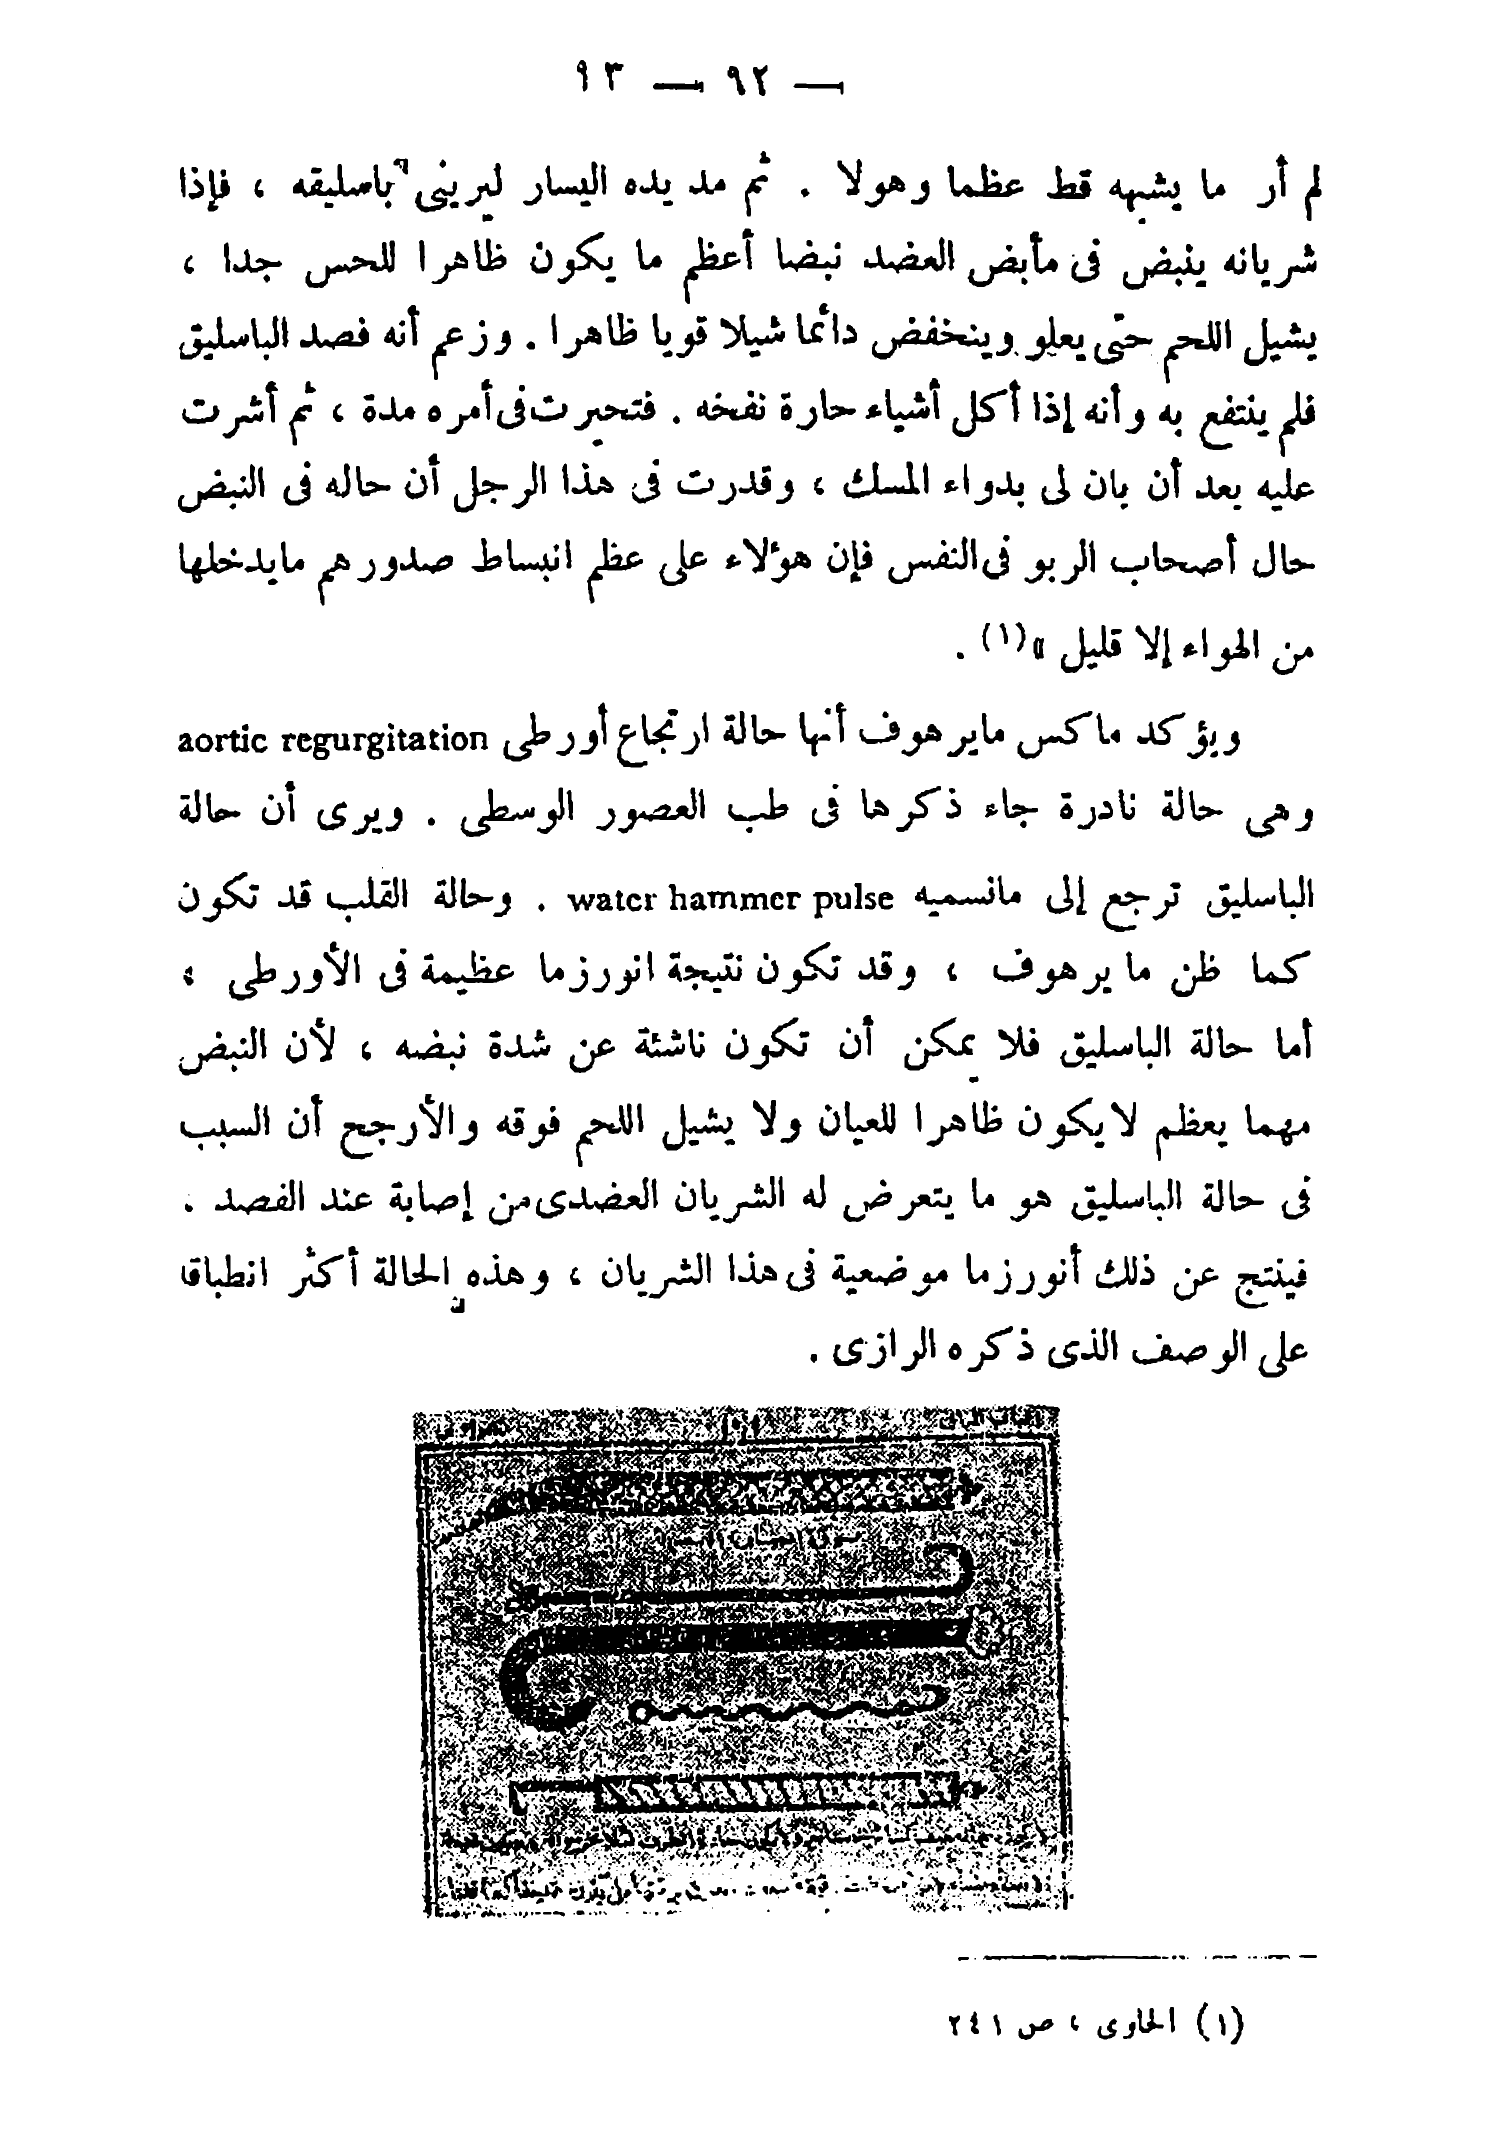 — ٩٢ — ٩٣
لم أر ما يشبهه قط عظما وهولا . ثم مد يده اليسار ليرينى باسليقه ، فإذا
شريانه ينبض فى مأبض العضد نبضا أعظم ما يكون ظاهرا للحس جدا ،
يشيل اللحم حتى يعلو وينخفض دائما شيلا قويا ظاهرا . وزعم أنه فصد الباسليق
فلم ينتفع به وأنه إذا أكل أشياء حارة نفخه . فتحيرت فى أمره مدة ، ثم أشرت
عليه بعد أن بان لى بدواء المسك ، وقدرت فى هذا الرجل أن حاله فى النبض
حال أصحاب الربو فى النفس فإن هؤلاء على عظم انبساط صدورهم مايدخلها
من الهواء إلا قليل »(١) .
ويؤكد ماكس مايرهوف أنها حالة ارتجاع أورطى aortic regurgitation
وهى حالة نادرة جاء ذكرها فى طب العصور الوسطى . ويرى أن حالة
الباسليق ترجع إلى مانسميه water hammer pulse . وحالة القلب قد تكون
كما ظن مايرهوف ، وقد تكون نتيجة انورزما عظيمة فى الأورطى ،
أما حالة الباسليق فلا يمكن أن تكون ناشئة عن شدة نبضه ، لأن النبض
مهما يعظم لا يكون ظاهرا للعيان ولا يشيل اللحم فوقه والأرجح أن السبب
فى حالة الباسليق هو ما يتعرض له الشريان العضدى من إصابة عند الفصد .
فينتج عن ذلك أنورزما موضعية فى هذا الشريان ، وهذه الحالة أكثر انطباقا
على الوصف الذى ذكره الرازى .
(١) الحاوى ، ص ٢٤١